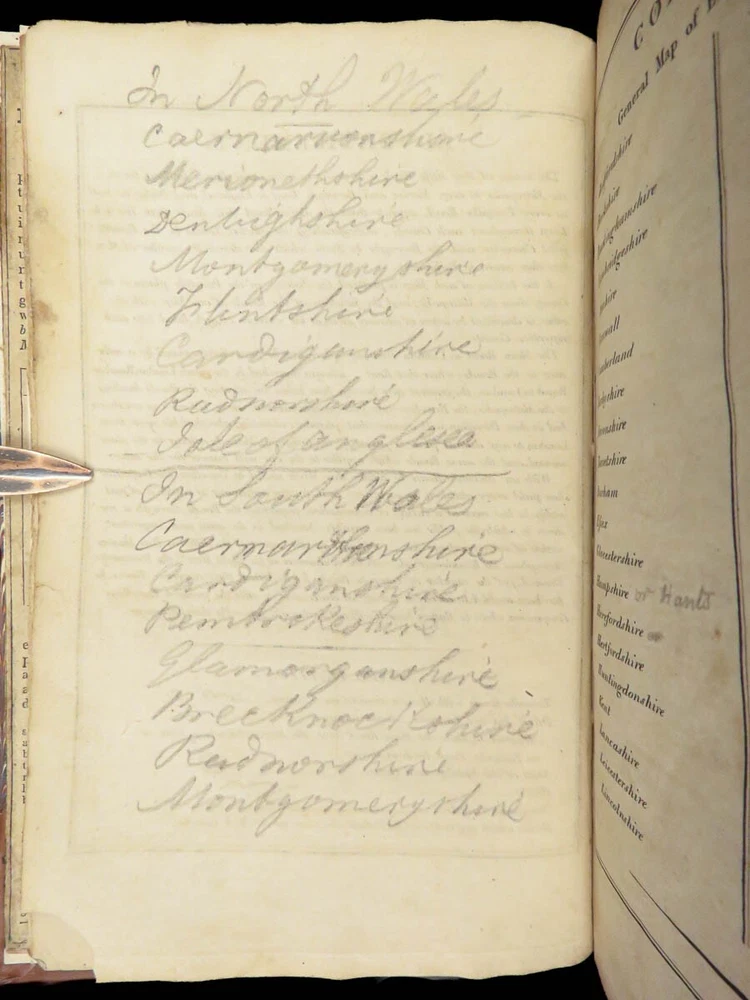 In North Wales
Caernarvonshire
Merionethshire
Denbighshire
Montgomeryshire
Flintshire
Cardiganshire
Radnorshire
Isle of anglesea
In South Wales
Caermarthenshire
Cardiganshire
Pembrokeshire
Glamorganshire
Brecknockshire
Radnorshire
Montgomeryshire
CO
General Map of
Bedfordshire
Berkshire
Buckinghamshire
Cambridgeshire
Cheshire
Cornwall
Cumberland
Derbyshire
Devonshire
Dorsetshire
Durham
Essex
Gloucestershire
Hampshire or Hants
Herefordshire
Hertfordshire
Huntingdonshire
Kent
Lancashire
Leicestershire
Lincolnshire